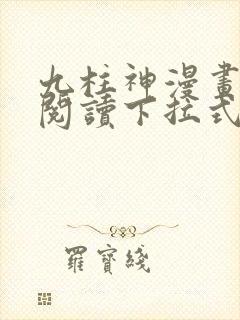 九柱神漫畫
閱讀下拉式
羅寶綫